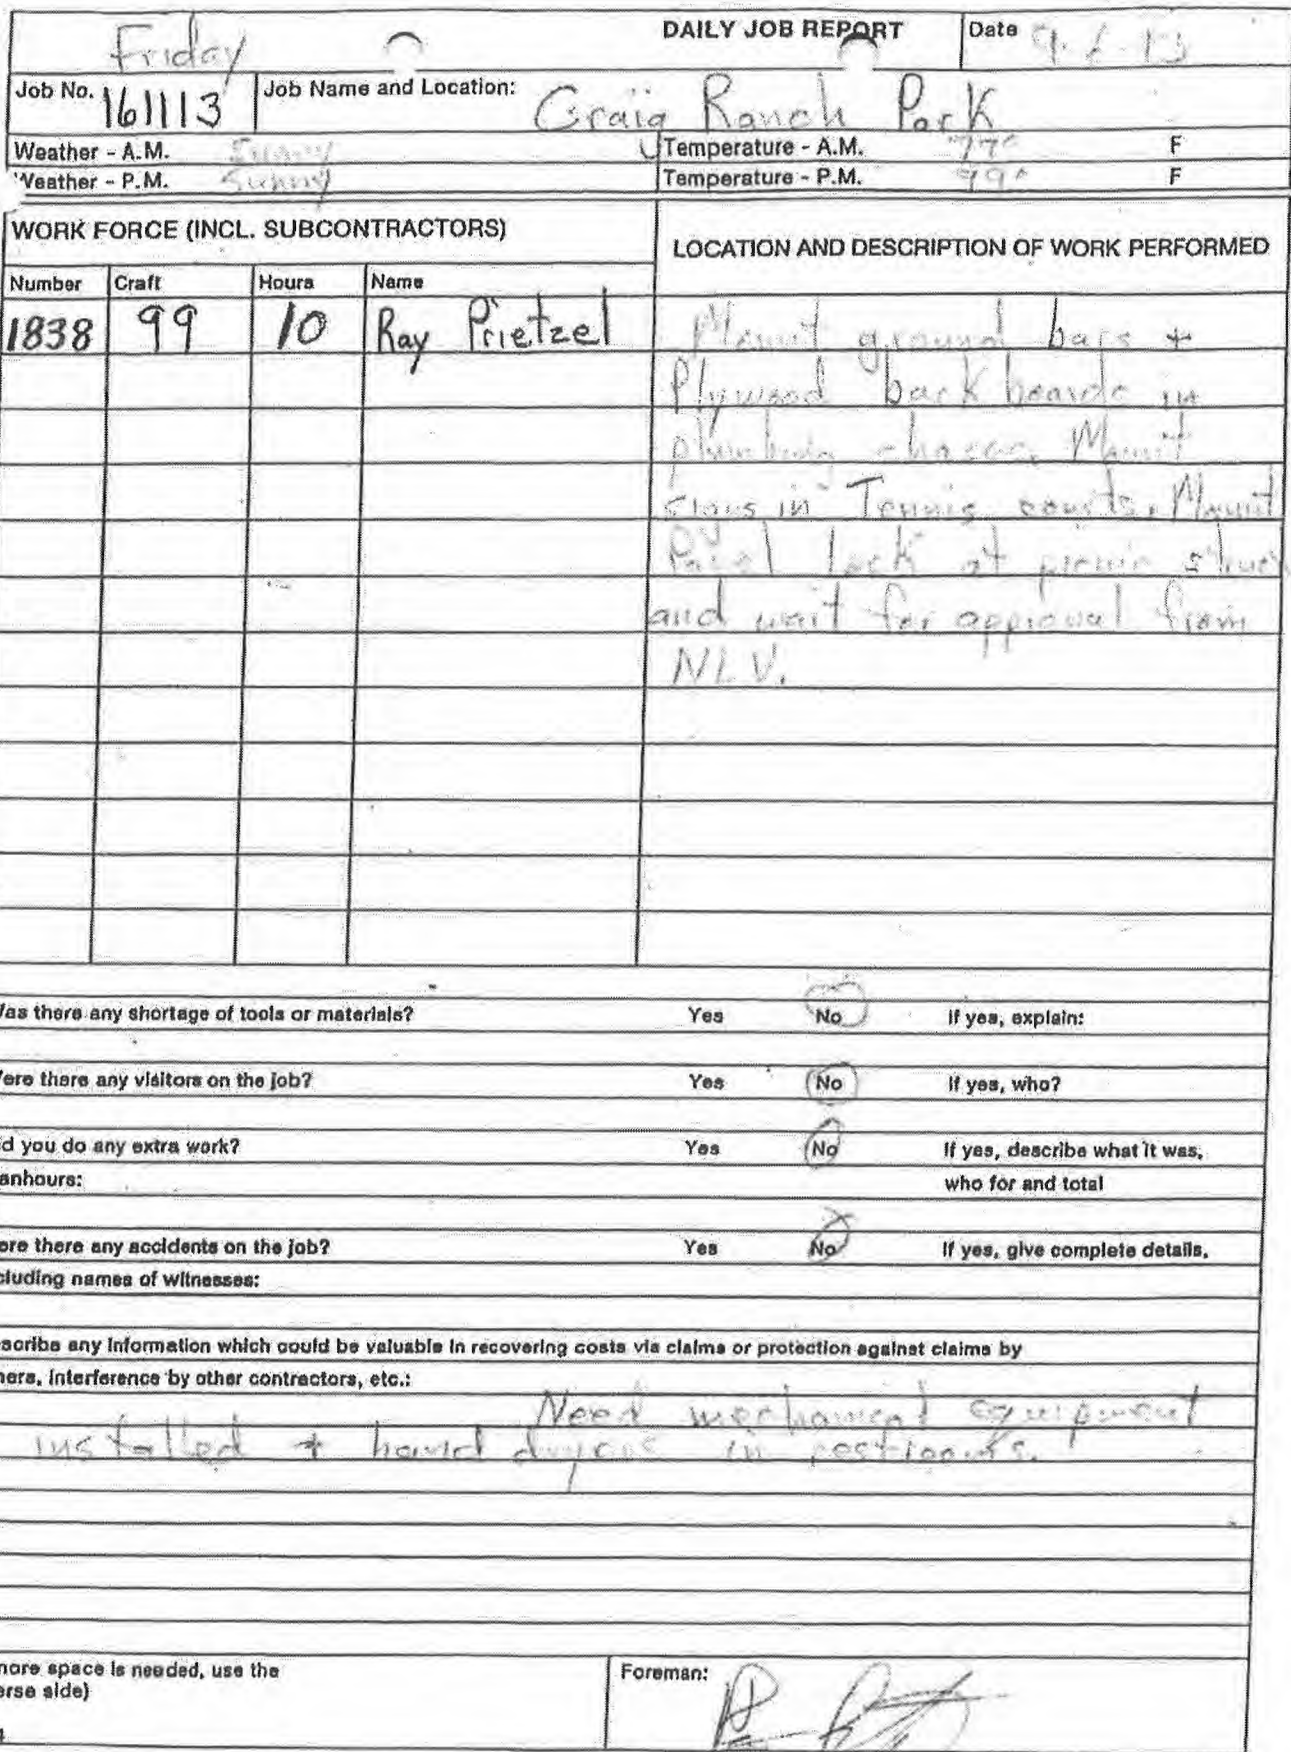 Friday DAILY JOB REPORT Date 9-6-13
Job No. 161113 Job Name and Location: Craig Ranch Park
Weather - A.M. Sunny Temperature - A.M. 77° F
Weather - P.M. Sunny Temperature - P.M. 99° F
WORK FORCE (INCL. SUBCONTRACTORS) LOCATION AND DESCRIPTION OF WORK PERFORMED
Number Craft Hours Name
1838 99 10 Ray Prietzel Mount ground bars +
Plywood back boards in
plumbing chases. Mount
signs in Tennis courts. Mount
Panel lock at picnic
and wait for approval from
NLV.
Was there any shortage of tools or materials? Yes No If yes, explain:
ere there any visitors on the job? Yes No If yes, who?
d you do any extra work? Yes No If yes, describe what it was,
anhours: who for and total
ere there any accidents on the job? Yes No If yes, give complete details,
cluding names of witnesses:
scribe any information which could be valuable in recovering costs via claims or protection against claims by
hers, interference by other contractors, etc.:
Need mechanical equipment
installed + hand dryers in restrooms.
more space is needed, use the Foreman:
erse side)